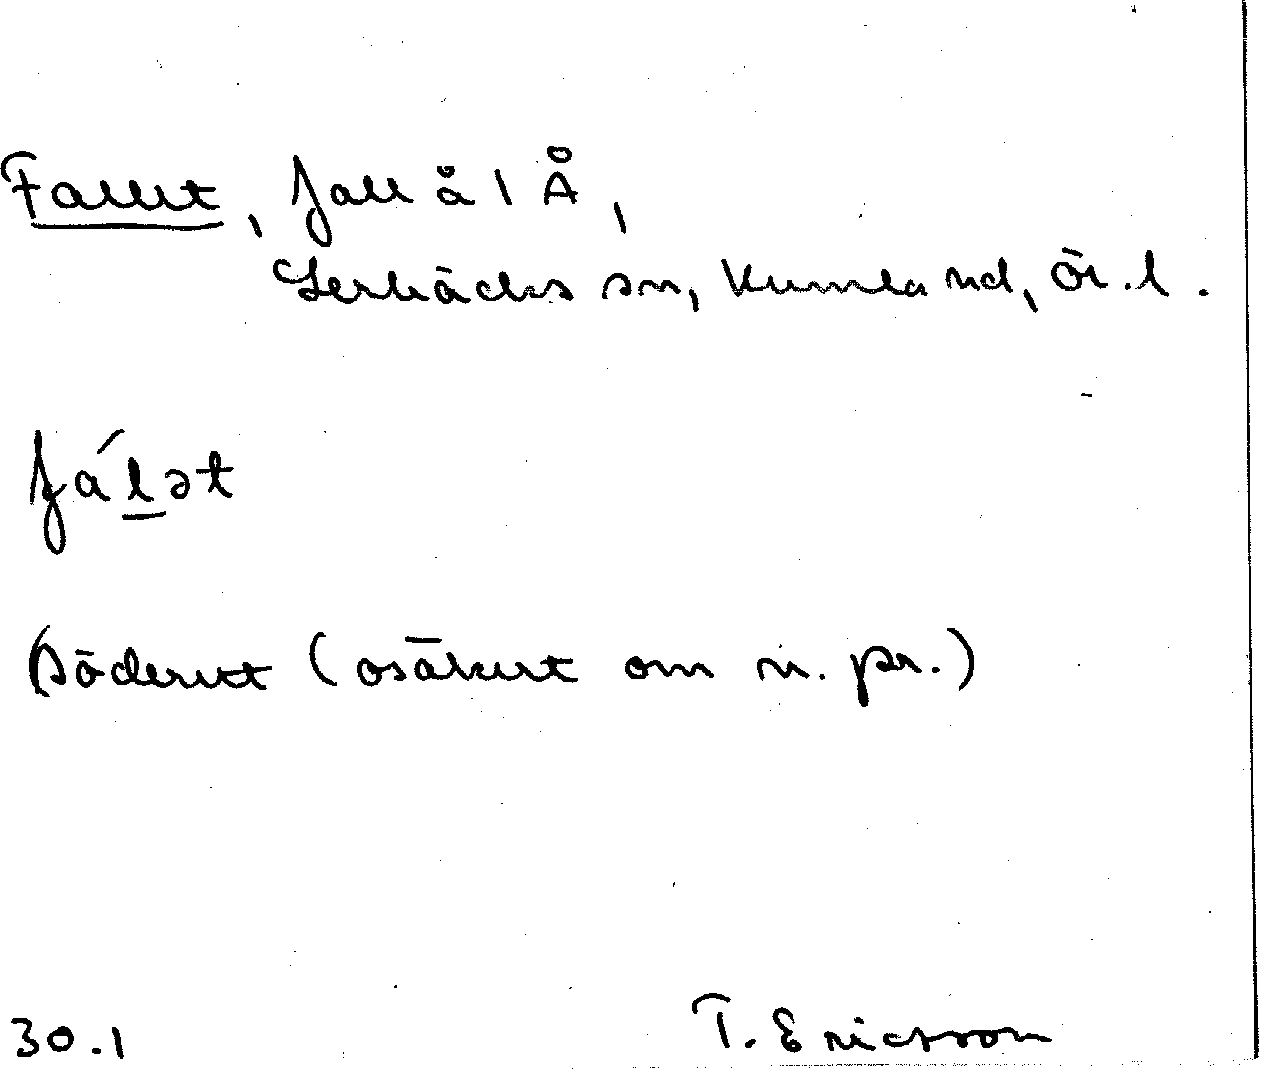 Fallet, fall å 1 Å,
Lerbäcks sn, Kumla hd, Ör. l.
fá'l̲ət
(söderut (osäkert om n. pr.)
30.1 T. Ericsson